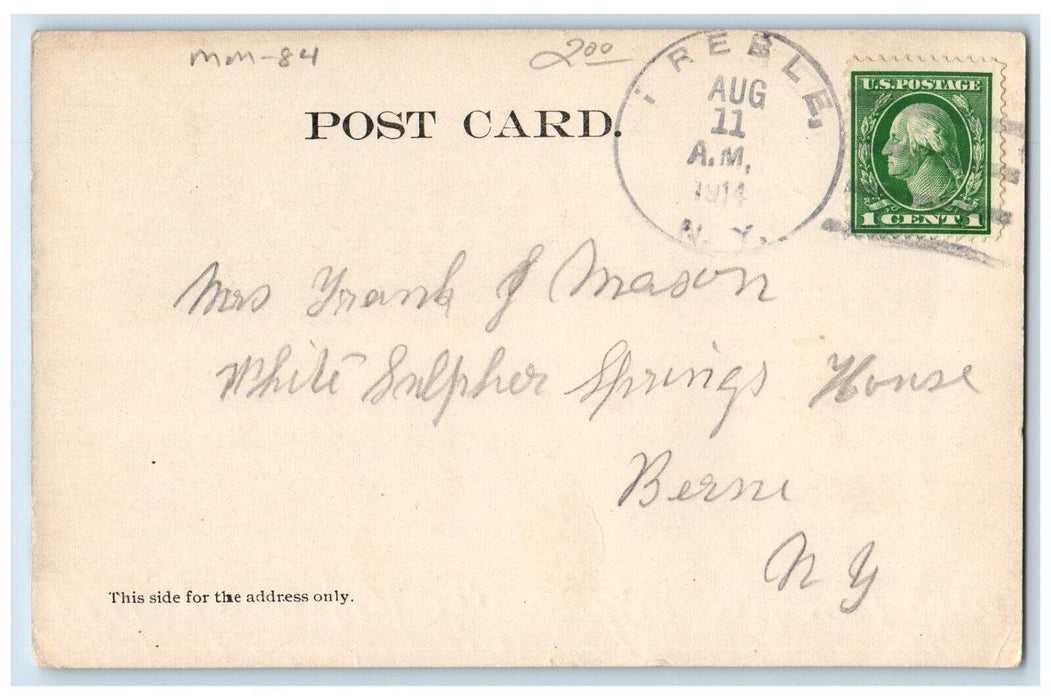 MM-84
200
POST CARD.
REBLE,
AUG
11
A.M.
1914
N. Y.
U.S. POSTAGE
1 CENT 1
Mrs Frank J Mason
White Sulpher Springs House
Berne
N Y
This side for the address only.